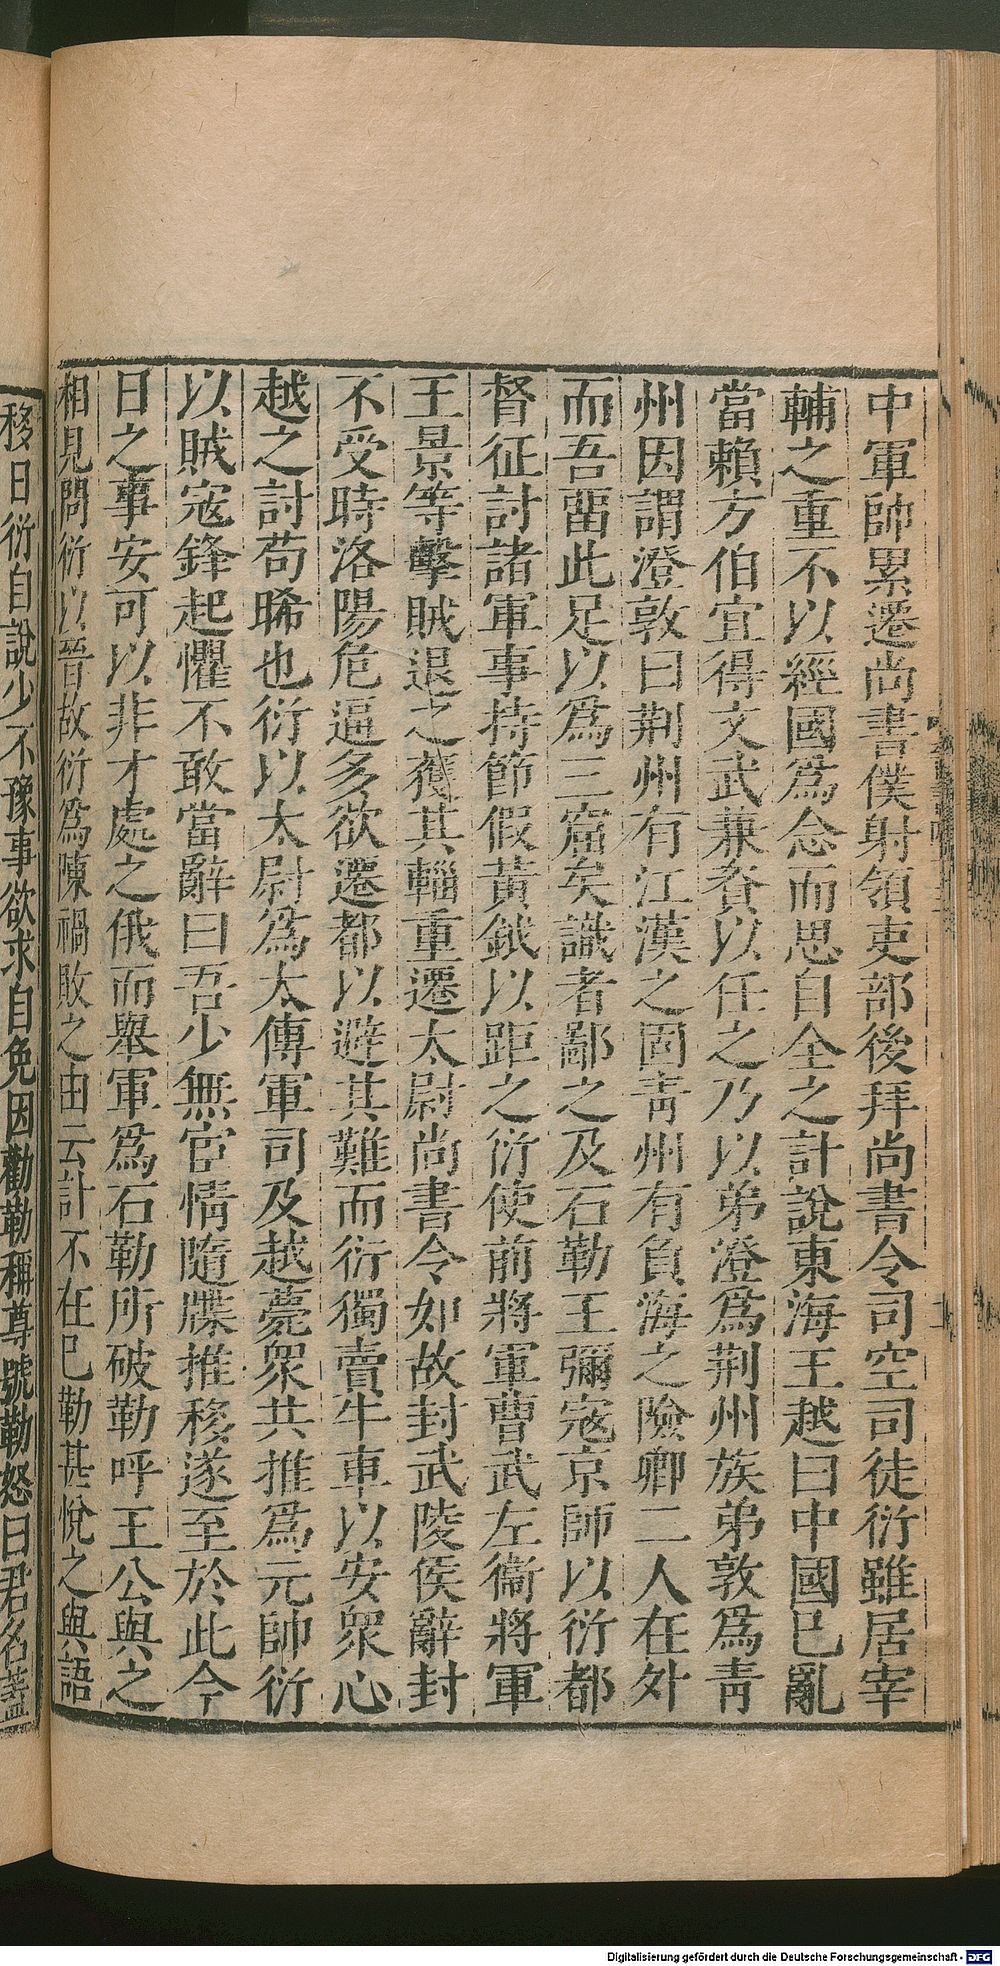 中軍師累遷尚書僕射領吏部後拜尚書令司空司徒衍雖居宰
輔之重不以經國爲念而思自全之計說東海王越曰中國已亂
當賴方伯宜得文武兼資以任之乃以弟澄爲荆州族弟敦爲青
州因謂澄敦曰荆州有江漢之固青州有負海之險卿二人在外
而吾畱此足以爲三窟矣識者鄙之及石勒王彌寇京師以衍都
督征討諸軍事持節假黃鉞以距之衍使前將軍曹武左衞將軍
王景等擊賊退之獲其輜重遷太尉尚書令如故封武陵侯辭封
不受時洛陽危逼多欲遷都以避其難而衍獨賣牛車以安衆心
越之討苟晞也衍以太尉爲太傅軍司及越薨衆共推爲元帥衍
以賊寇鋒起懼不敢當辭曰吾少無宦情隨牒推移遂至於此今
日之事安可以非才處之俄而舉軍爲石勒所破勒呼王公與之
相見問衍以晉故衍爲陳禍敗之由云計不在已勒甚悅之與語
移日衍自說少不豫事欲求自免因勸勒稱尊號勒怒曰君名蓋
Digitalisierung gefördert durch die Deutsche Forschungsgemeinschaft - DFG